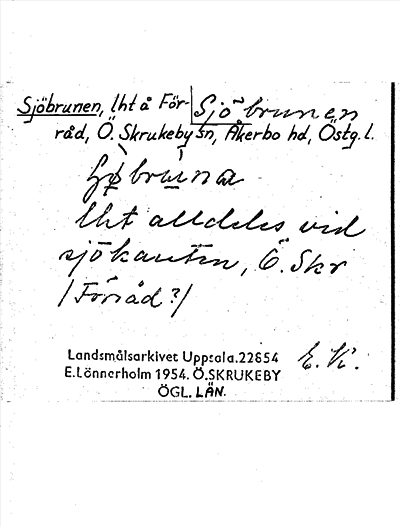 Sjöbrunen, lht å För-
Sjöbrunen
råd, Ö. Skrukeby sn, Åkerbo hd, Östg. l.
lht alldeles vid
sjökanten, Ö. Skr
/Förråd?/
Landsmålsarkivet Uppsala.22854
E. K.
E.Lönnerholm 1954. Ö.SKRUKEBY
ÖGL. LÄN.